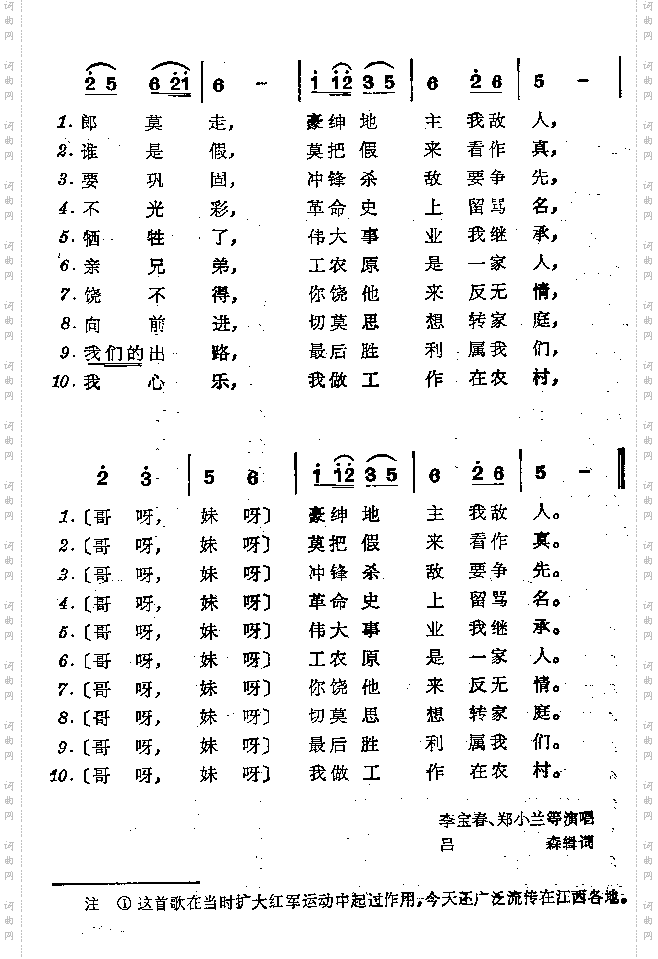 2 5 6 2 1 | 6 – | 1 1 2 3 5 | 6 2 6 | 5 – |
1. 郎 莫 走, 豪绅地 主 我敌 人,
2. 谁 是 假, 莫把假 来 看作 真,
3. 要 巩 固, 冲锋杀 敌 要争 先,
4. 不 光 彩, 革命史 上 留骂 名,
5. 牺 牲 了, 伟大事 业 我继 承,
6. 亲 兄 弟, 工农原 是 一家 人,
7. 饶 不 得, 你饶他 来 反无 情,
8. 向 前 进, 切莫思 想 转家 庭,
9. 我们的出 路, 最后胜 利 属我 们,
10. 我 心 乐, 我做工 作 在农 村,
2 3 5 6 | 1 1 2 3 5 | 6 2 6 | 5 – ‖
1.〔哥 呀, 妹 呀〕 豪绅地 主 我敌 人。
2.〔哥 呀, 妹 呀〕 莫把假 来 看作 真。
3.〔哥 呀, 妹 呀〕 冲锋杀 敌 要争 先。
4.〔哥 呀, 妹 呀〕 革命史 上 留骂 名。
5.〔哥 呀, 妹 呀〕 伟大事 业 我继 承。
6.〔哥 呀, 妹 呀〕 工农原 是 一家 人。
7.〔哥 呀, 妹 呀〕 你饶他 来 反无 情。
8.〔哥 呀, 妹 呀〕 切莫思 想 转家 庭。
9.〔哥 呀, 妹 呀〕 最后胜 利 属我 们。
10.〔哥 呀, 妹 呀〕 我做工 作 在农 村。
李宝春、郑小兰等演唱
吕 森缉词
注 ①这首歌在当时扩大红军运动中起过作用,今天还广泛流传在江西各地。
词曲网